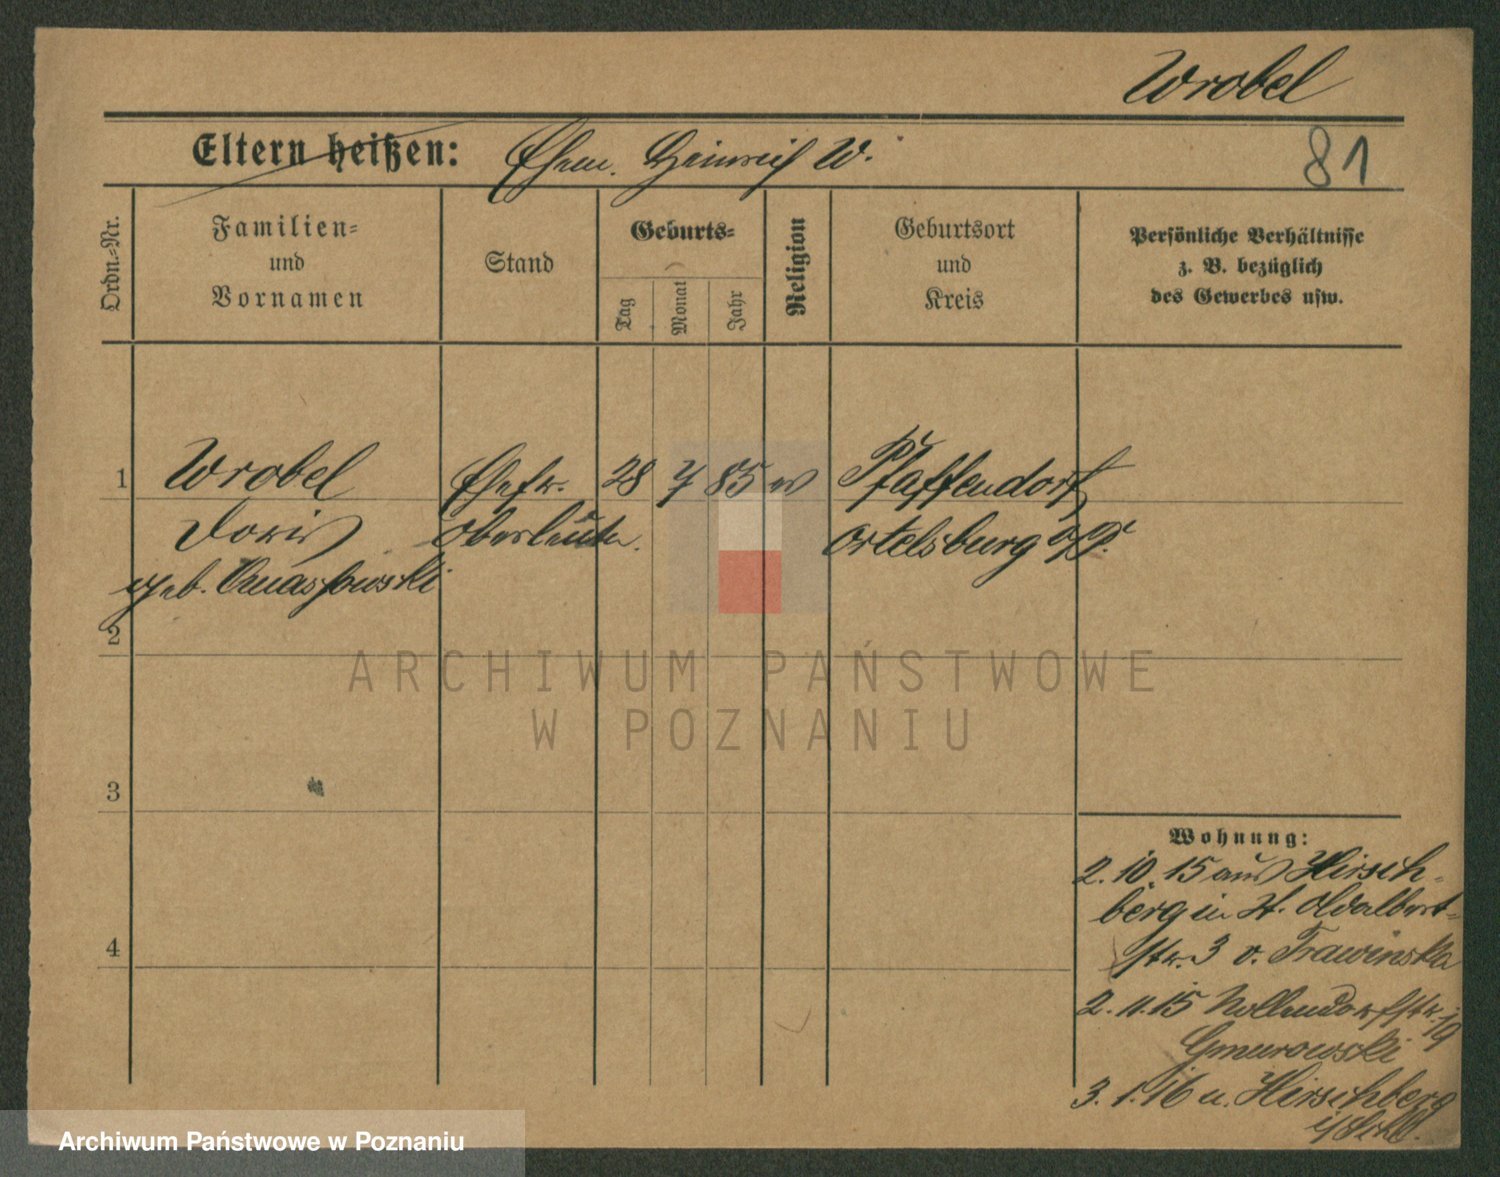 Wrobel
Eltern heißen: Ehem. Heinrich W.
81
Ordn.-Nr.
Familien-
und
Vornamen
Stand
Geburts-
Tag
Monat
Jahr
Religion
Geburtsort
und
Kreis
Persönliche Verhältnisse
z. B. bezüglich
des Gewerbes usw.
1 Wrobel Ehefr. 28 7 85 Pfaffendorf
Doris Ortelsburg o/Pr.
geb.
2
3
4
ARCHIWUM PAŃSTWOWE
W POZNANIU
Wohnung:
2. 10. 15 aus Hirsch-
berg in St. Adalbert-
str. 3 v. Trawinska
2. 11. 15 Nollendorfstr. 19
Gmurowski
3. 1. 16 n. Hirschberg
i/Schl.
Archiwum Państwowe w Poznaniu